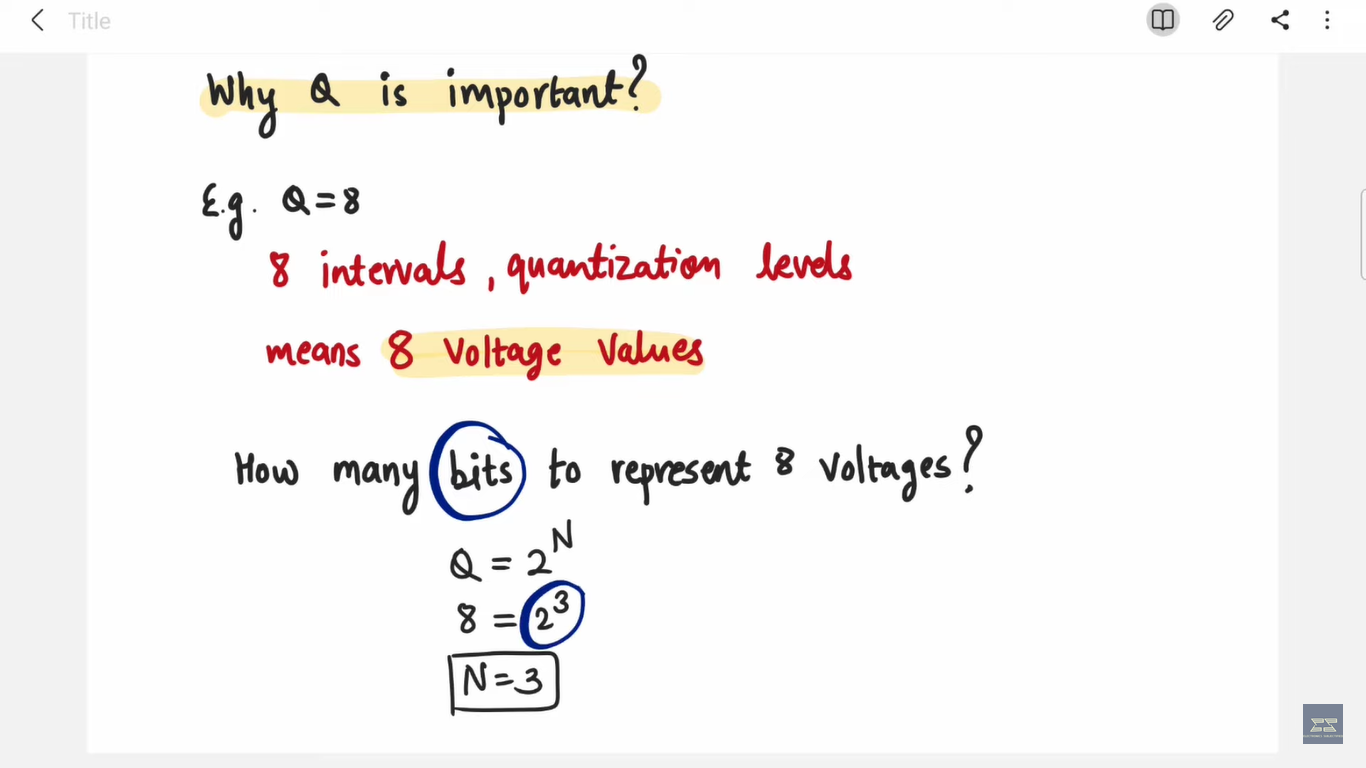 Title
Why Q is important?
E.g. Q=8
8 intervals, quantization levels
means 8 Voltage Values
How many bits to represent 8 Voltages?
Q = 2^N
8 = 2^3
N=3